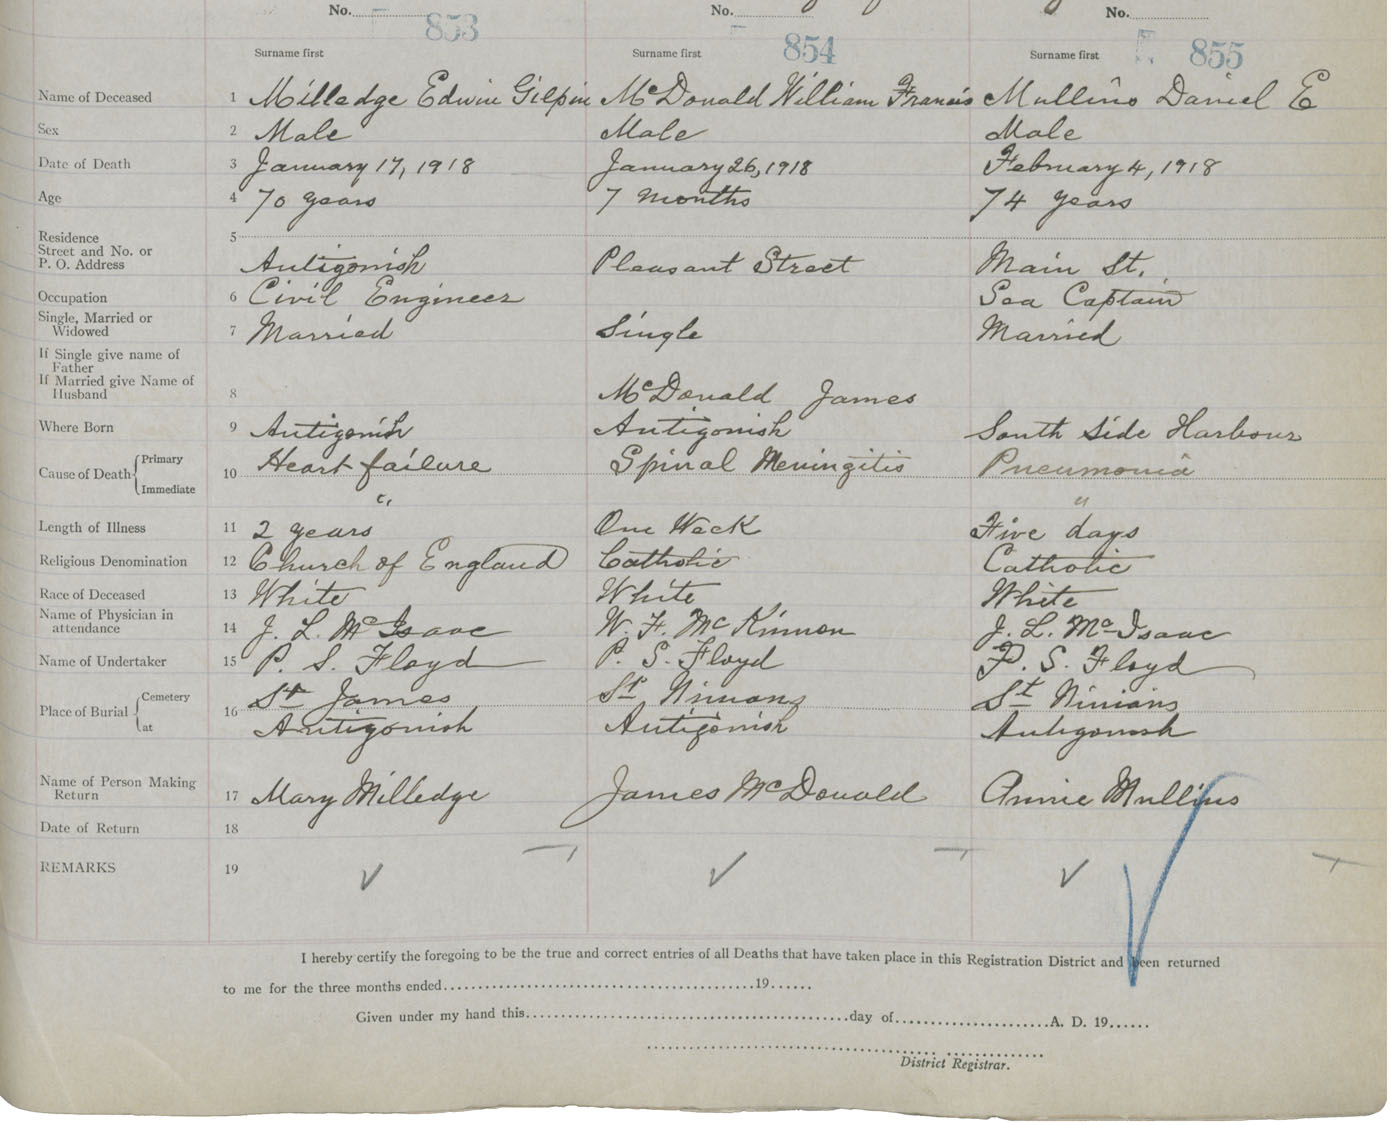 No. No. No.
853 854 855
Surname first Surname first Surname first
Name of Deceased 1 Milledge Edwin Gilpin McDonald William Francis Mullins Daniel E
Sex 2 Male Male Male
Date of Death 3 January 17, 1918 January 26, 1918 February 4, 1918
Age 4 70 years 7 months 74 years
Residence 5
Street and No. or
P. O. Address Antigonish Pleasant Street Main St.
Occupation 6 Civil Engineer Sea Captain
Single, Married or
Widowed 7 Married Single Married
If Single give name of
Father
If Married give Name of
Husband 8 McDonald James
Where Born 9 Antigonish Antigonish South Side Harbour
Cause of Death { Primary 10 Heart failure Spinal Meningitis Pneumonia
Immediate " "
Length of Illness 11 2 years One Week Five days
Religious Denomination 12 Church of England Catholic Catholic
Race of Deceased 13 White White White
Name of Physician in
attendance 14 J. L. McIsaac W. F. McKinnon J. L. McIsaac
Name of Undertaker 15 P. S. Floyd P. S. Floyd P. S. Floyd
Place of Burial { Cemetery 16 St James St Ninians St Ninians
at Antigonish Antigonish Antigonish
Name of Person Making
Return 17 Mary Milledge James McDonald Annie Mullins
Date of Return 18
REMARKS 19
I hereby certify the foregoing to be the true and correct entries of all Deaths that have taken place in this Registration District and been returned
to me for the three months ended 19
Given under my hand this day of A. D. 19
District Registrar.